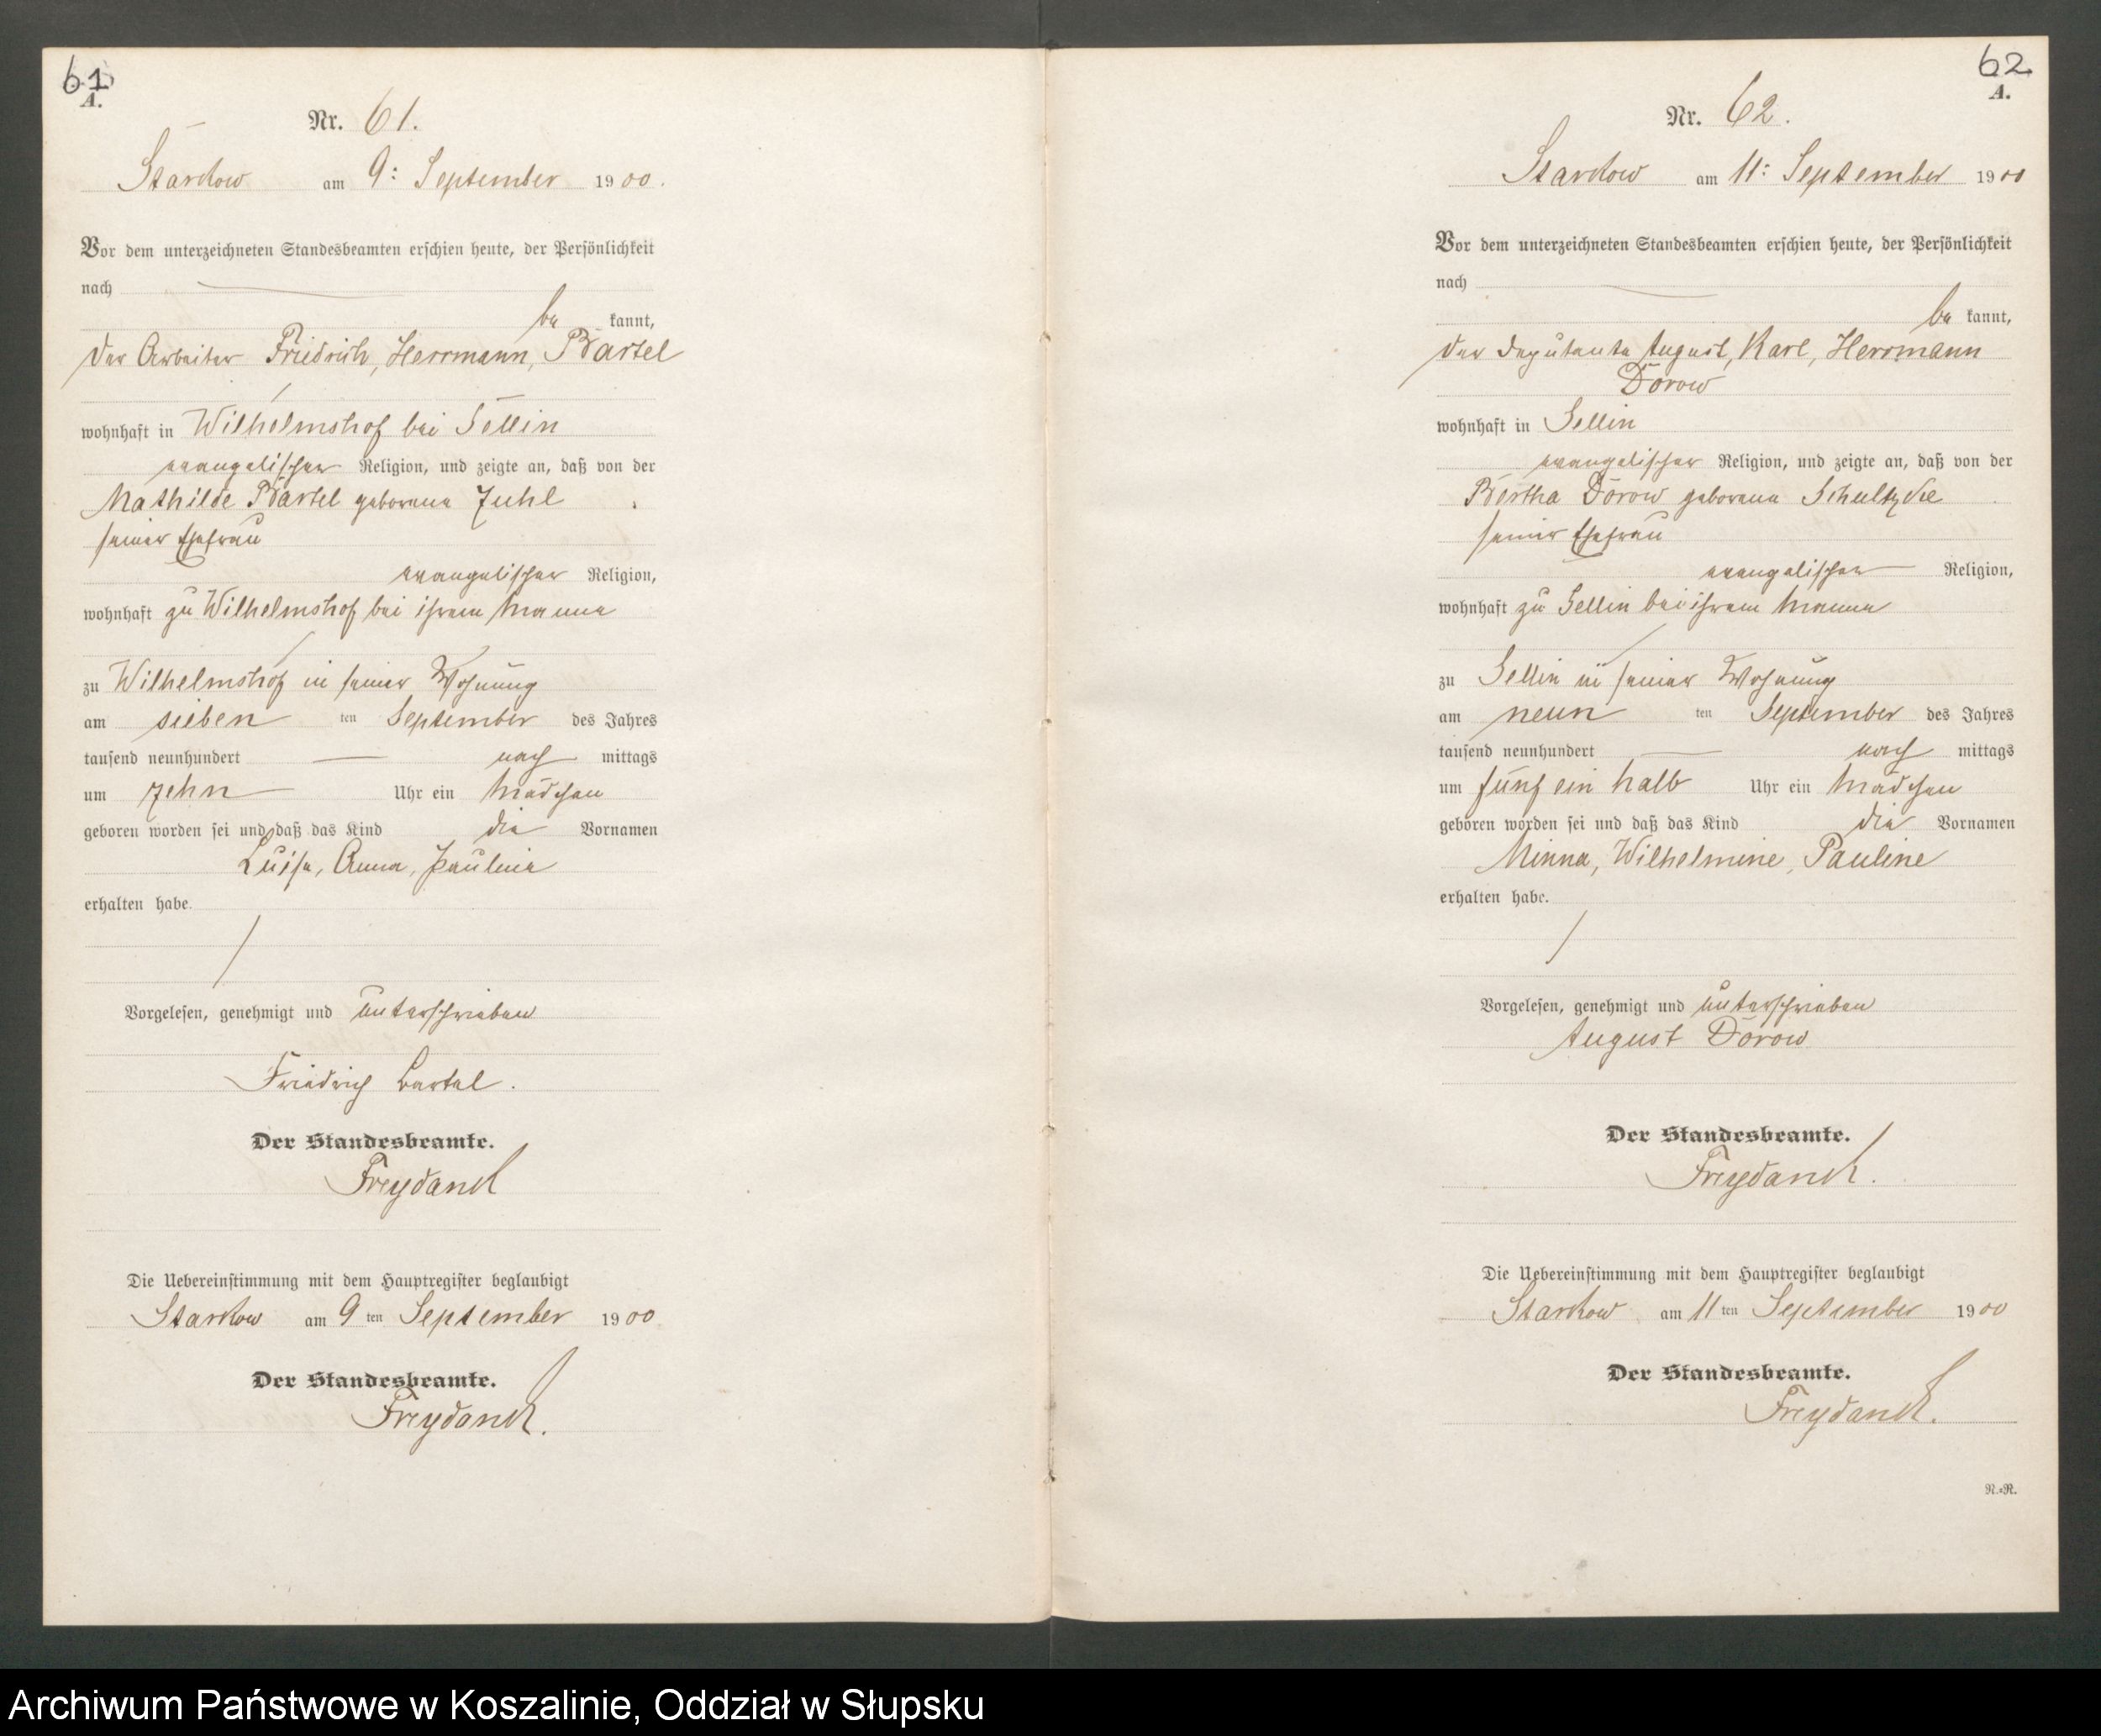 61
A.
Nr. 61.
Starckow am 9: September 1900.
Vor dem unterzeichneten Standesbeamten erschien heute, der Persönlichkeit
nach
be kannt,
der Arbeiter Friedrich, Herrmann, Bartel
wohnhaft in Wilhelmshof bei Sellin
evangelischer Religion, und zeigte an, daß von der
Mathilde Bartel geborene Juhl
seiner Ehefrau
evangelischer Religion,
wohnhaft zu Wilhelmshof bei ihrem Manne
zu Wilhelmshof in seiner Wohnung
am sieben ten September des Jahres
tausend neunhundert — nach mittags
um zehn Uhr ein Mädchen
geboren worden sei und daß das Kind die Vornamen
Luise, Anna, Pauline
erhalten habe.
Vorgelesen, genehmigt und unterschrieben
Friedrich Bartel.
Der Standesbeamte.
Freydanck
Die Uebereinstimmung mit dem Hauptregister beglaubigt
Starckow am 9 ten September 1900
Der Standesbeamte.
Freydanck.
62
A.
Nr. 62.
Starckow am 11: September 1900
Vor dem unterzeichneten Standesbeamten erschien heute, der Persönlichkeit
nach
be kannt,
der Deputante August, Karl, Herrmann
Dorow
wohnhaft in Sellin
evangelischer Religion, und zeigte an, daß von der
Bertha Dorow geborene
seiner Ehefrau
evangelischer Religion,
wohnhaft zu Sellin bei ihrem Manne
zu Sellin in seiner Wohnung
am neun ten September des Jahres
tausend neunhundert — nach mittags
um fünf ein halb Uhr ein Mädchen
geboren worden sei und daß das Kind die Vornamen
Minna, Wilhelmine, Pauline
erhalten habe.
Vorgelesen, genehmigt und unterschrieben
August Dorow
Der Standesbeamte.
Freydanck.
Die Uebereinstimmung mit dem Hauptregister beglaubigt
Starckow am 11 ten September 1900
Der Standesbeamte.
Freydanck.
N.=R.
Archiwum Państwowe w Koszalinie, Oddział w Słupsku